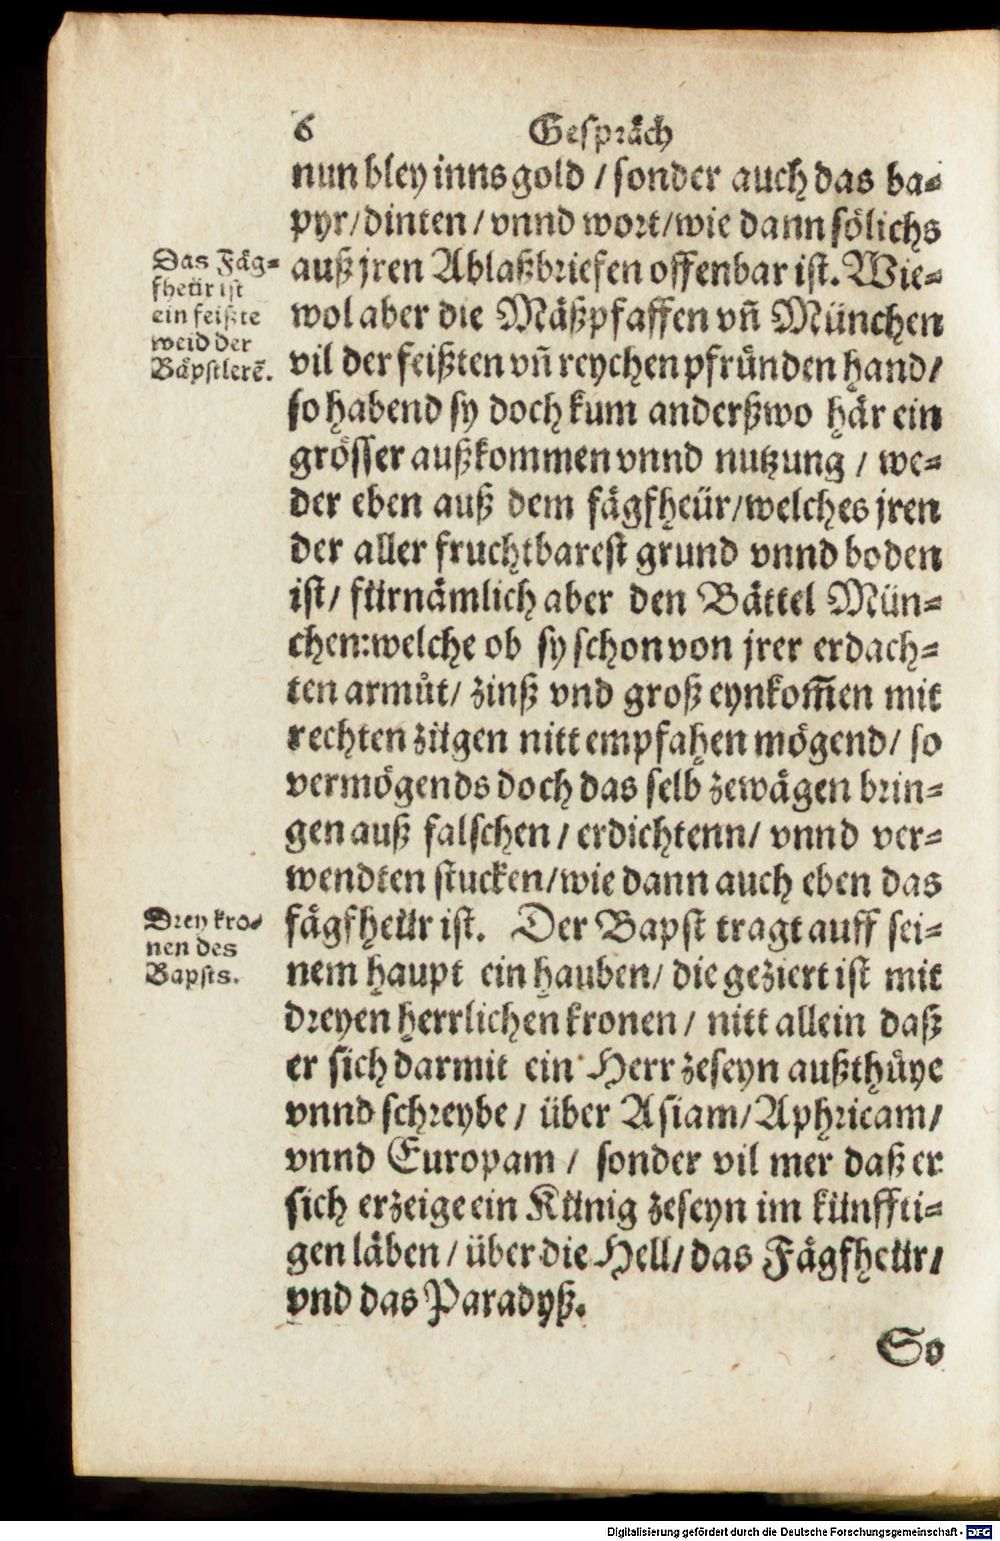 6 Gespräch
nun bley inns gold / sonder auch das ba⸗
pyr / dinten / vnnd wort / wie dann sölichs
auß jren Ablaßbriefen offenbar ist. Wie⸗
wol aber die Mäßpfaffen vñ München
vil der feißten vñ reychen pfründen hand /
so habend sy doch kum anderßwo här ein
grösser außkommen vnnd nutzung / we⸗
der eben auß dem fägfheür / welches jren
der aller fruchtbarest grund vnnd boden
ist / fürnämlich aber den Bättel Mün⸗
chen: welche ob sy schon von jrer erdach⸗
ten armůt / zinß vnd groß eynkom̃en mit
rechten zügen nitt empfahen mögend / so
vermögends doch das selb zewägen brin⸗
gen auß falschen / erdichtenn / vnnd ver⸗
wendten stucken / wie dann auch eben das
fägfheür ist. Der Bapst tragt auff sei⸗
nem haupt ein hauben / die geziert ist mit
dreyen herrlichen kronen / nitt allein daß
er sich darmit ein Herr zeseyn außthüye
vnnd schreybe / über Asiam / Aphricam /
vnnd Europam / sonder vil mer daß er
sich erzeige ein Künig zeseyn im künffti⸗
gen läben / über die Hell / das Fägfheür /
vnd das Paradyß.
So
Das Fäg⸗
fheür ist
ein feißte
weid der
Bäpstlerē.
Drey kro⸗
nen des
Bapsts.
Digitalisierung gefördert durch die Deutsche Forschungsgemeinschaft - DFG